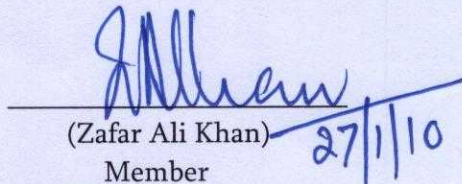 (Zafar Ali Khan)
27/1/10
Member